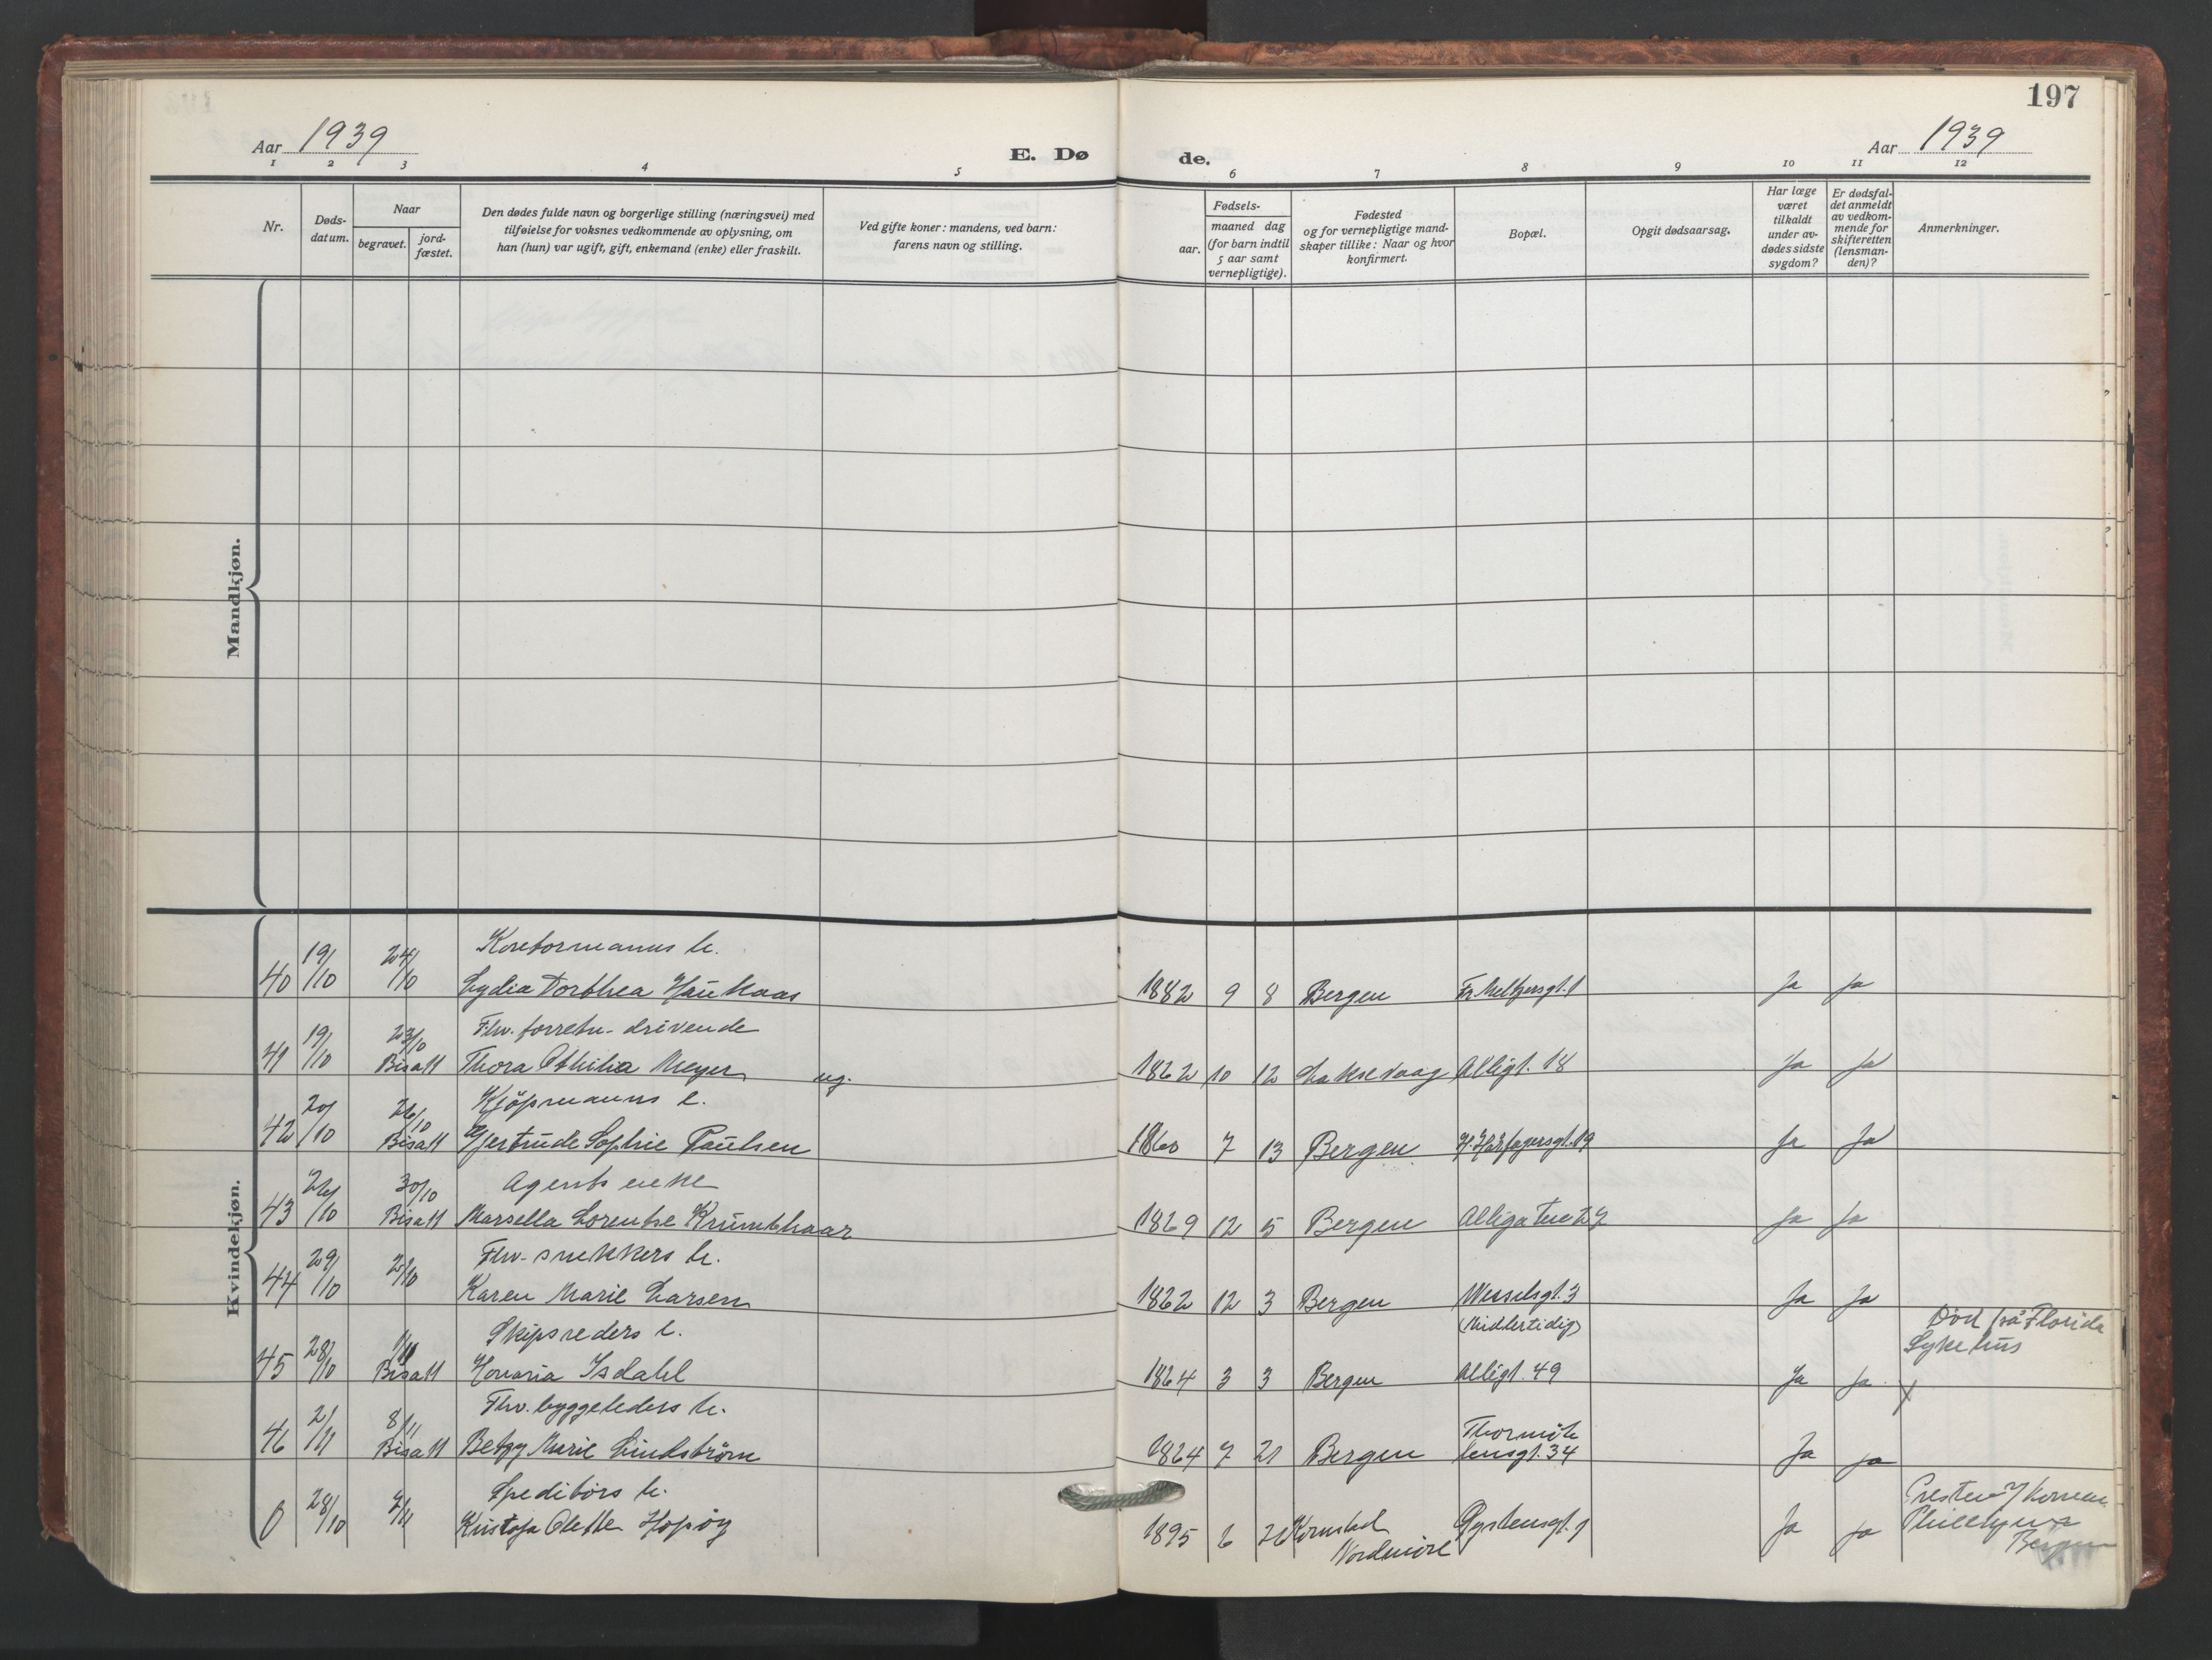 197
Aar 1939
E. Dø
de.
Aar 1939
1 2 3 4 5 6 7 8 9 10 11 12
Nr.
Døds-
datum.
Naar
begravet.
jord-
fæstet.
Den dødes fulde navn og borgerlige stilling (næringsvei) med
tilføielse for voksnes vedkommende av oplysning, om
han (hun) var ugift, gift, enkemand (enke) eller fraskilt.
Ved gifte koner: mandens, ved barn:
farens navn og stilling.
Fødsels-
aar.
maaned dag
(for barn indtil
5 aar samt
vernepligtige).
Fødested
og for vernepligtige mand-
skaper tillike: Naar og hvor
konfirmert.
Bopæl.
Opgit dødsaarsag.
Har læge
været
tilkaldt
under av-
dødes sidste
sygdom?
Er dødsfal-
det anmeldt
av vedkom-
mende for
skifteretten
(lensman-
den)?
Anmerkninger.
Mandkjøn.
Kvindekjøn.
40 19/10 24/10
Lydia Dorthea Haukaas 1882 9 8 Bergen Ja Ja
Fhv. forretn. drivende
41 19/10 23/10 Bisatt Thora Othilia Meyer ug. 1862 10 12 Laksevaag Allégt. 18 Ja Ja
Kjøpmanns e.
42 20/10 26/10 Bisatt Gjertrude Sophie Paulsen 1860 7 13 Bergen H. Hårfagersgt. 19 Ja Ja
Agents enke
43 26/10 30/10 Bisatt Marsella Lorentse Krumbhaar 1869 12 5 Bergen Ja Ja
Fhv. snekkers h.
44 29/10 Karen Marie Larsen 1862 12 3 Bergen Wesselsgt. 3 Ja Ja
(Midlertidig)
Skipsreders e.
Død på Florida
Sykehus
45 28/10 1/11 Bisatt Honoria Isdahl 1864 3 3 Bergen Allégt. 49 Ja Ja x
Fhv. byggeleders h.
46 2/11 8/11 Bisatt Betzy Marie Lindstrøm 1864 7 21 Bergen Thormøh
lensgt. 34 Ja Ja
Speditørs h.
0 28/10 2/11 Kristofa Olette Hopøy 1895 6 26 Kornstad
Nordmøre Ja Ja
Bergen